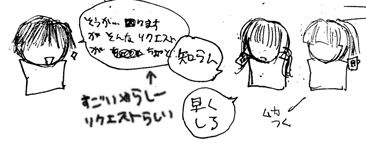 そうか… 困ります
が そんな リクエスト
が
知らん
すごいやらしー
リクエストらしい
早く
しろ
ムカ
つく